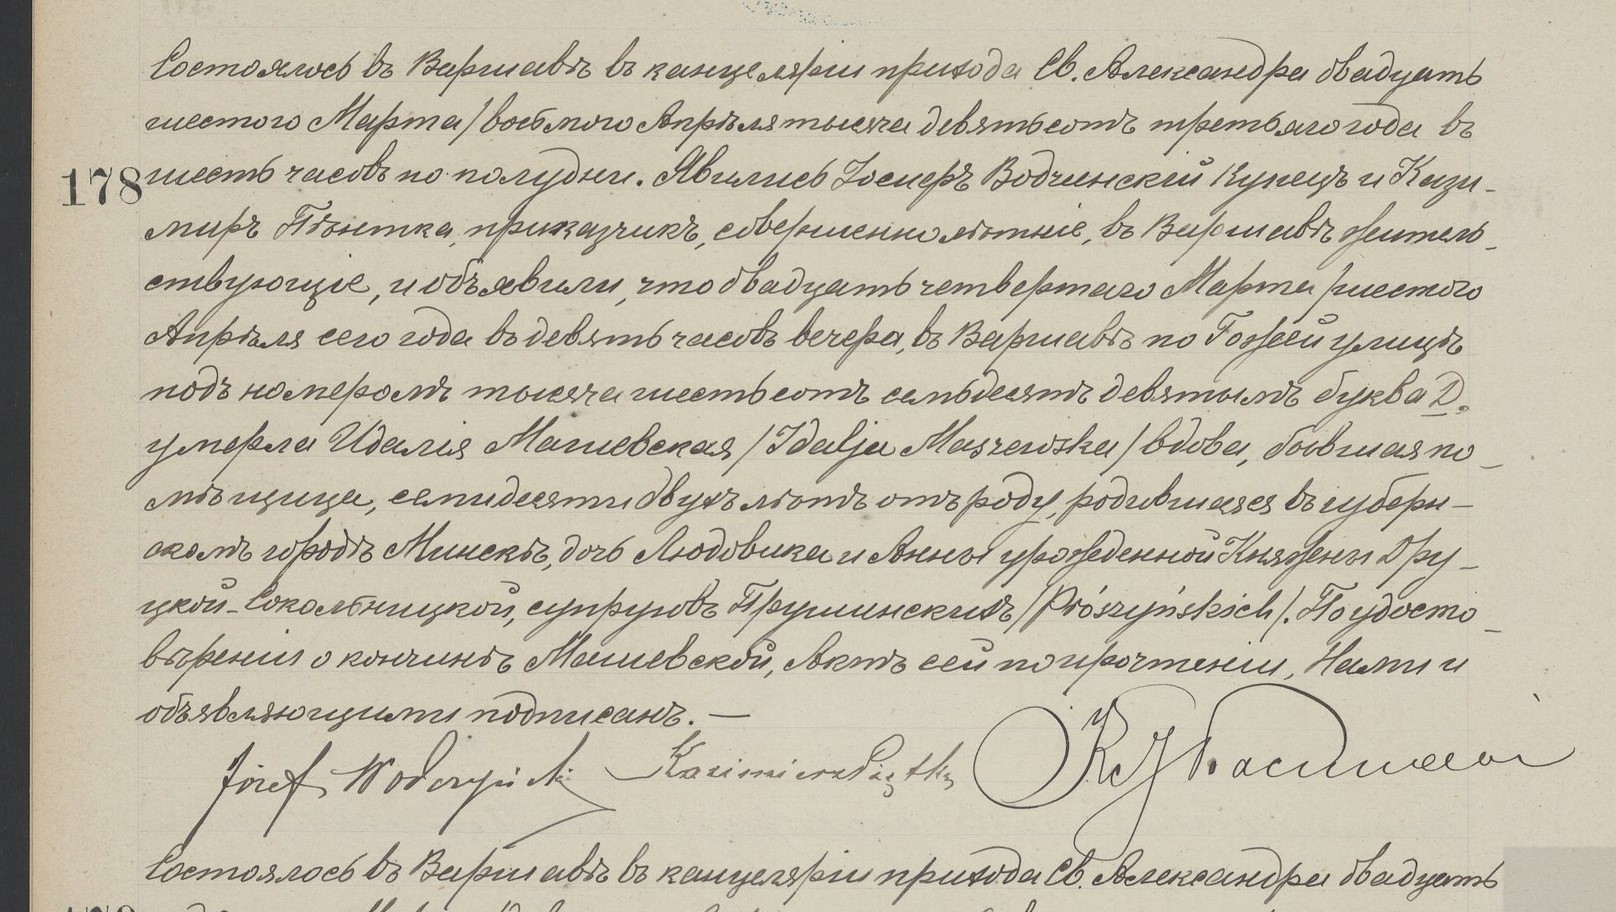 Состоялось въ Варшавѣ въ канцеляріи прихода Св. Александра двадцать
шестого Марта /восьмого Апрѣля тысяча девятьсотъ третьяго года въ
178 шесть часовъ по полудни. Явились Іосифъ Водчинскій Купецъ и Кази-
миръ Піентка, приказчикъ, совершеннолѣтніе, въ Варшавѣ житель-
ствующіе, и объявили, что двадцать четвертаго Марта /шестого
Апрѣля сего года въ девять часовъ вечера, въ Варшавѣ по Гожей улицѣ
подъ номеромъ тысяча шестьсотъ семьдесятъ девятымъ буква D.
умерла Идалія Машевская /Idalja Maszewska/ вдова, бывшая по-
мѣщица, семидесяти двухъ лѣтъ отъ роду, родившаяся въ губерн-
скомъ городѣ Минскѣ, дочь Людовика и Анны урожденной Княжны Дру-
цкой-Сокольницкой, супруговъ Прушинскихъ /Prószyńskich/. По удосто-
вѣреніи о кончинѣ Машевской, Актъ сей по прочтеніи, Нами и
объявляющими подписанъ. —
Józef Wodczyński Kazimierz Piętka
Состоялось въ Варшавѣ въ канцеляріи прихода Св. Александра двадцать